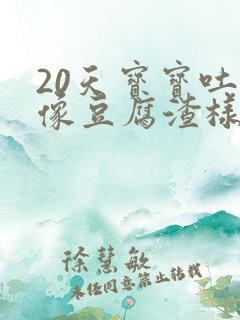 20天宝宝吐
像豆腐渣样
徐慧敏
未经同意禁止转载